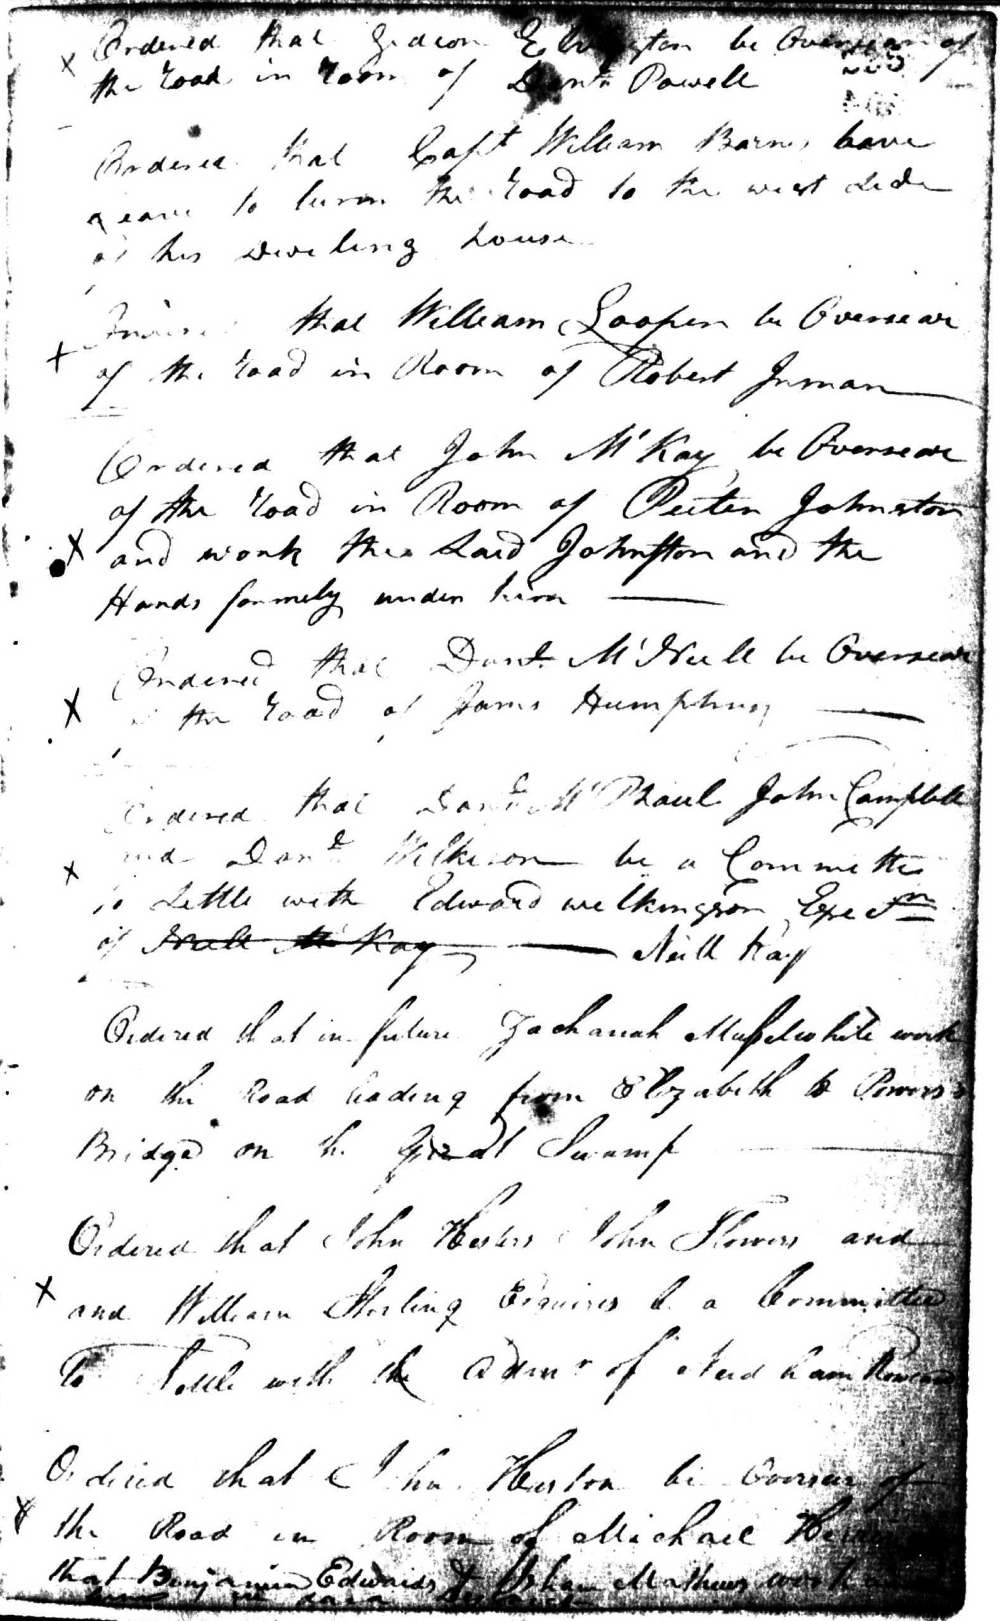 Ordered that Gedeon be Overseear of
the Road in Room of Danl Powell
Ordered that Capt William Barnes have
Leave to turn the Road to the west Side
of his Dweling house
that William Looper be Overseear
of the Road in Room of Robert Inman
Ordered that John McKay be Overseear
of the Road in Room of Peeter Johnston
X and work the Said Johnston and the
Hands formely under him
Ordered that Danl McNeill be Overseear
X of the Road of James Humphrey
Ordered that Danl McPhaul John Campbell
and Danl Wilkison be a Committe
X to Settle with Edward wilkingson Exectr
of Neill McKay Neill Kay
Ordered that in future Zachariah Musselwhite work
on the Road leading from Elizabeth to Powers's
Bridge on the Great Swamp
Ordered that John Hesters John Flowers and
X and William Sterling Esquires be a Committee
To Settle with the Admr of Needham
Ordered that John Heston be Overseer of
X the Road in Room of Michael
that Benjamin Edwards & Mathews work